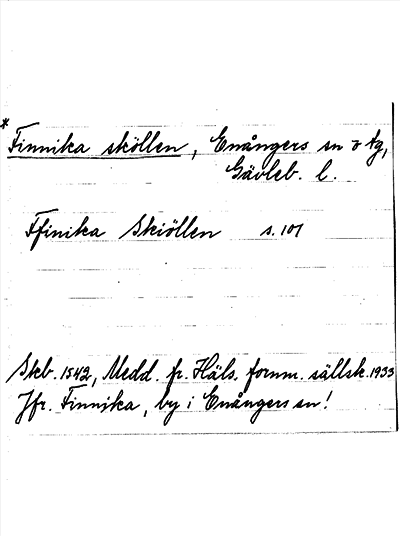 * Finnika sköllen, Enångers sn o tg,
Gävleb. l.
Ffinika Skiöllen s. 101
Skb. 1542, Medd. fr. Häls. fornm. sällsk. 1933
Jfr. Finnika, by i Enångers sn!